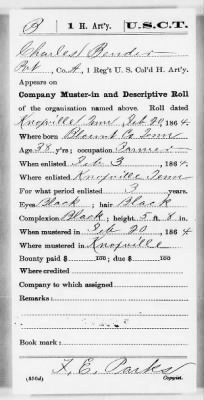 B | 1 H. Art'y. | U.S.C.T.
Charles Bender
Pvt, Co. A, 1 Reg't U. S. Col'd H. Art'y.
Appears on
Company Muster-in and Descriptive Roll
of the organization named above. Roll dated
Knoxville Tenn Feb 20, 1864.
Where born Blount Co Tenn
Age 38 y'rs; occupation Farmer
When enlisted Feb 3, 1864.
Where enlisted Knoxville Tenn
For what period enlisted 3 years.
Eyes Black; hair Black
Complexion Black; height 5 ft. 8 in.
When mustered in Feb 20, 1864
Where mustered in Knoxville
Bounty paid $ 100; due $ 100
Where credited
Company to which assigned
Remarks:
Book mark:
F. E. Parks
(356d) Copyist.